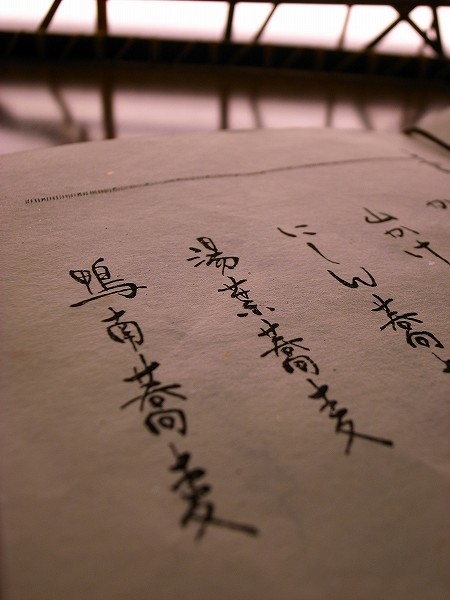 山かけ
にしん蕎
湯葉蕎麦
鴨南蕎麦